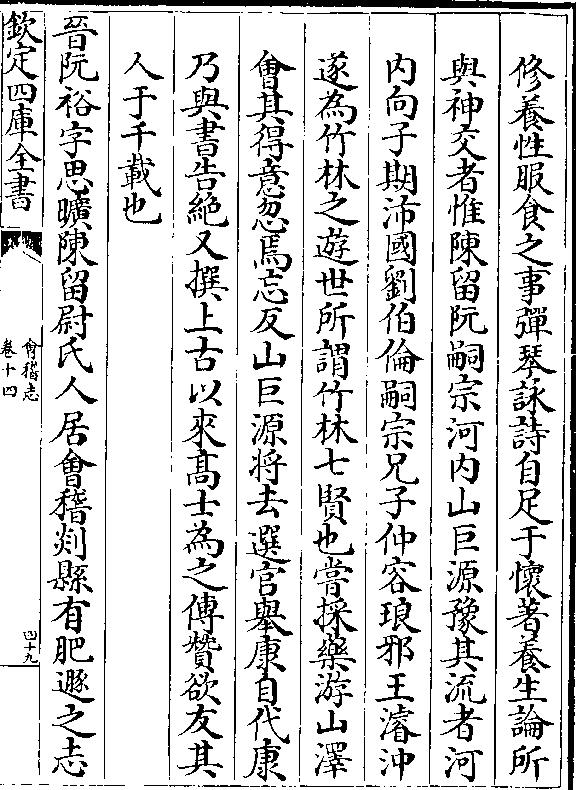 修養性服食之事彈琴詠詩自足于懷著養生論所
與神交者惟陳留阮嗣宗河内山巨源豫其流者河
内向子期沛國劉伯倫嗣宗兄子仲容琅邪王濬沖
遂為竹林之遊世所謂竹林七賢也嘗採藥游山澤
㑹其得意忽焉忘反山巨源将去選官舉康自代康
乃與書告絶又撰上古以來髙士為之傳贊欲友其
人于千載也
晉阮裕字思曠陳留尉氏人居㑹稽剡縣有肥遯之志
欽定四庫全書
㑹稽志
卷十四
四十九